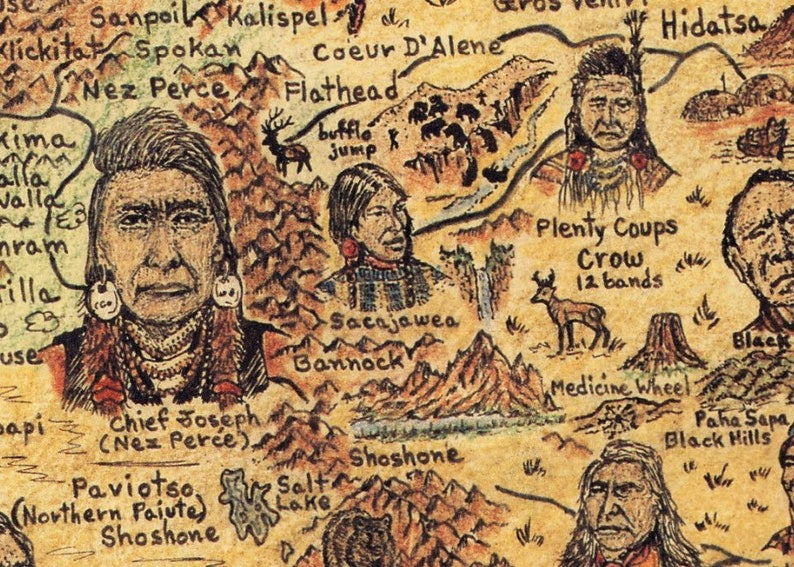 Sanpoil
Kalispel
Gros Ventr
Hidatsa
Klickitat
Spokan
Coeur D'Alene
Nez Perce
Flathead
kima
bufflo
jump
alla
valla
Plenty Coups
Crow
12 bands
Sacajawea
Black
Bannock
Medicine Wheel
Chief Joseph
(Nez Perce)
Paha Sapa
Black Hills
Shoshone
Paviotso
(Northern Paiute)
Shoshone
Salt
Lake